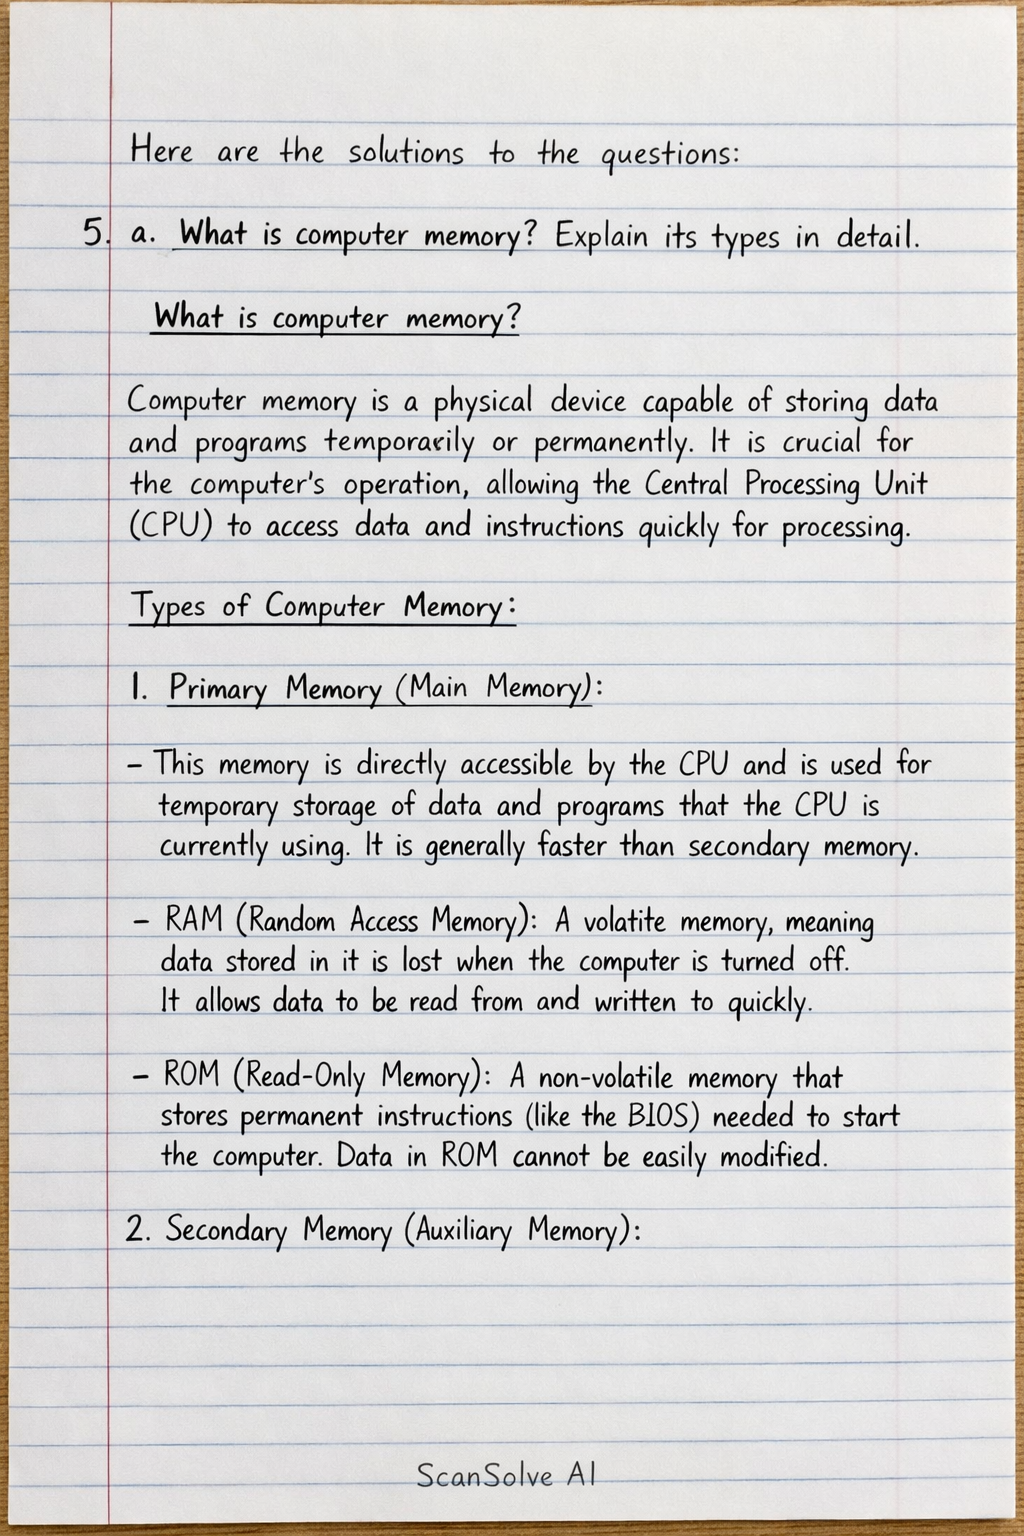 Here are the solutions to the questions:
5. a. What is computer memory? Explain its types in detail.
What is computer memory?
Computer memory is a physical device capable of storing data
and programs temporarily or permanently. It is crucial for
the computer's operation, allowing the Central Processing Unit
(CPU) to access data and instructions quickly for processing.
Types of Computer Memory:
1. Primary Memory (Main Memory):
– This memory is directly accessible by the CPU and is used for
temporary storage of data and programs that the CPU is
currently using. It is generally faster than secondary memory.
– RAM (Random Access Memory): A volatite memory, meaning
data stored in it is lost when the computer is turned off.
It allows data to be read from and written to quickly.
– ROM (Read-Only Memory): A non-volatile memory that
stores permanent instructions (like the BIOS) needed to start
the computer. Data in ROM cannot be easily modified.
2. Secondary Memory (Auxiliary Memory):
ScanSolve AI